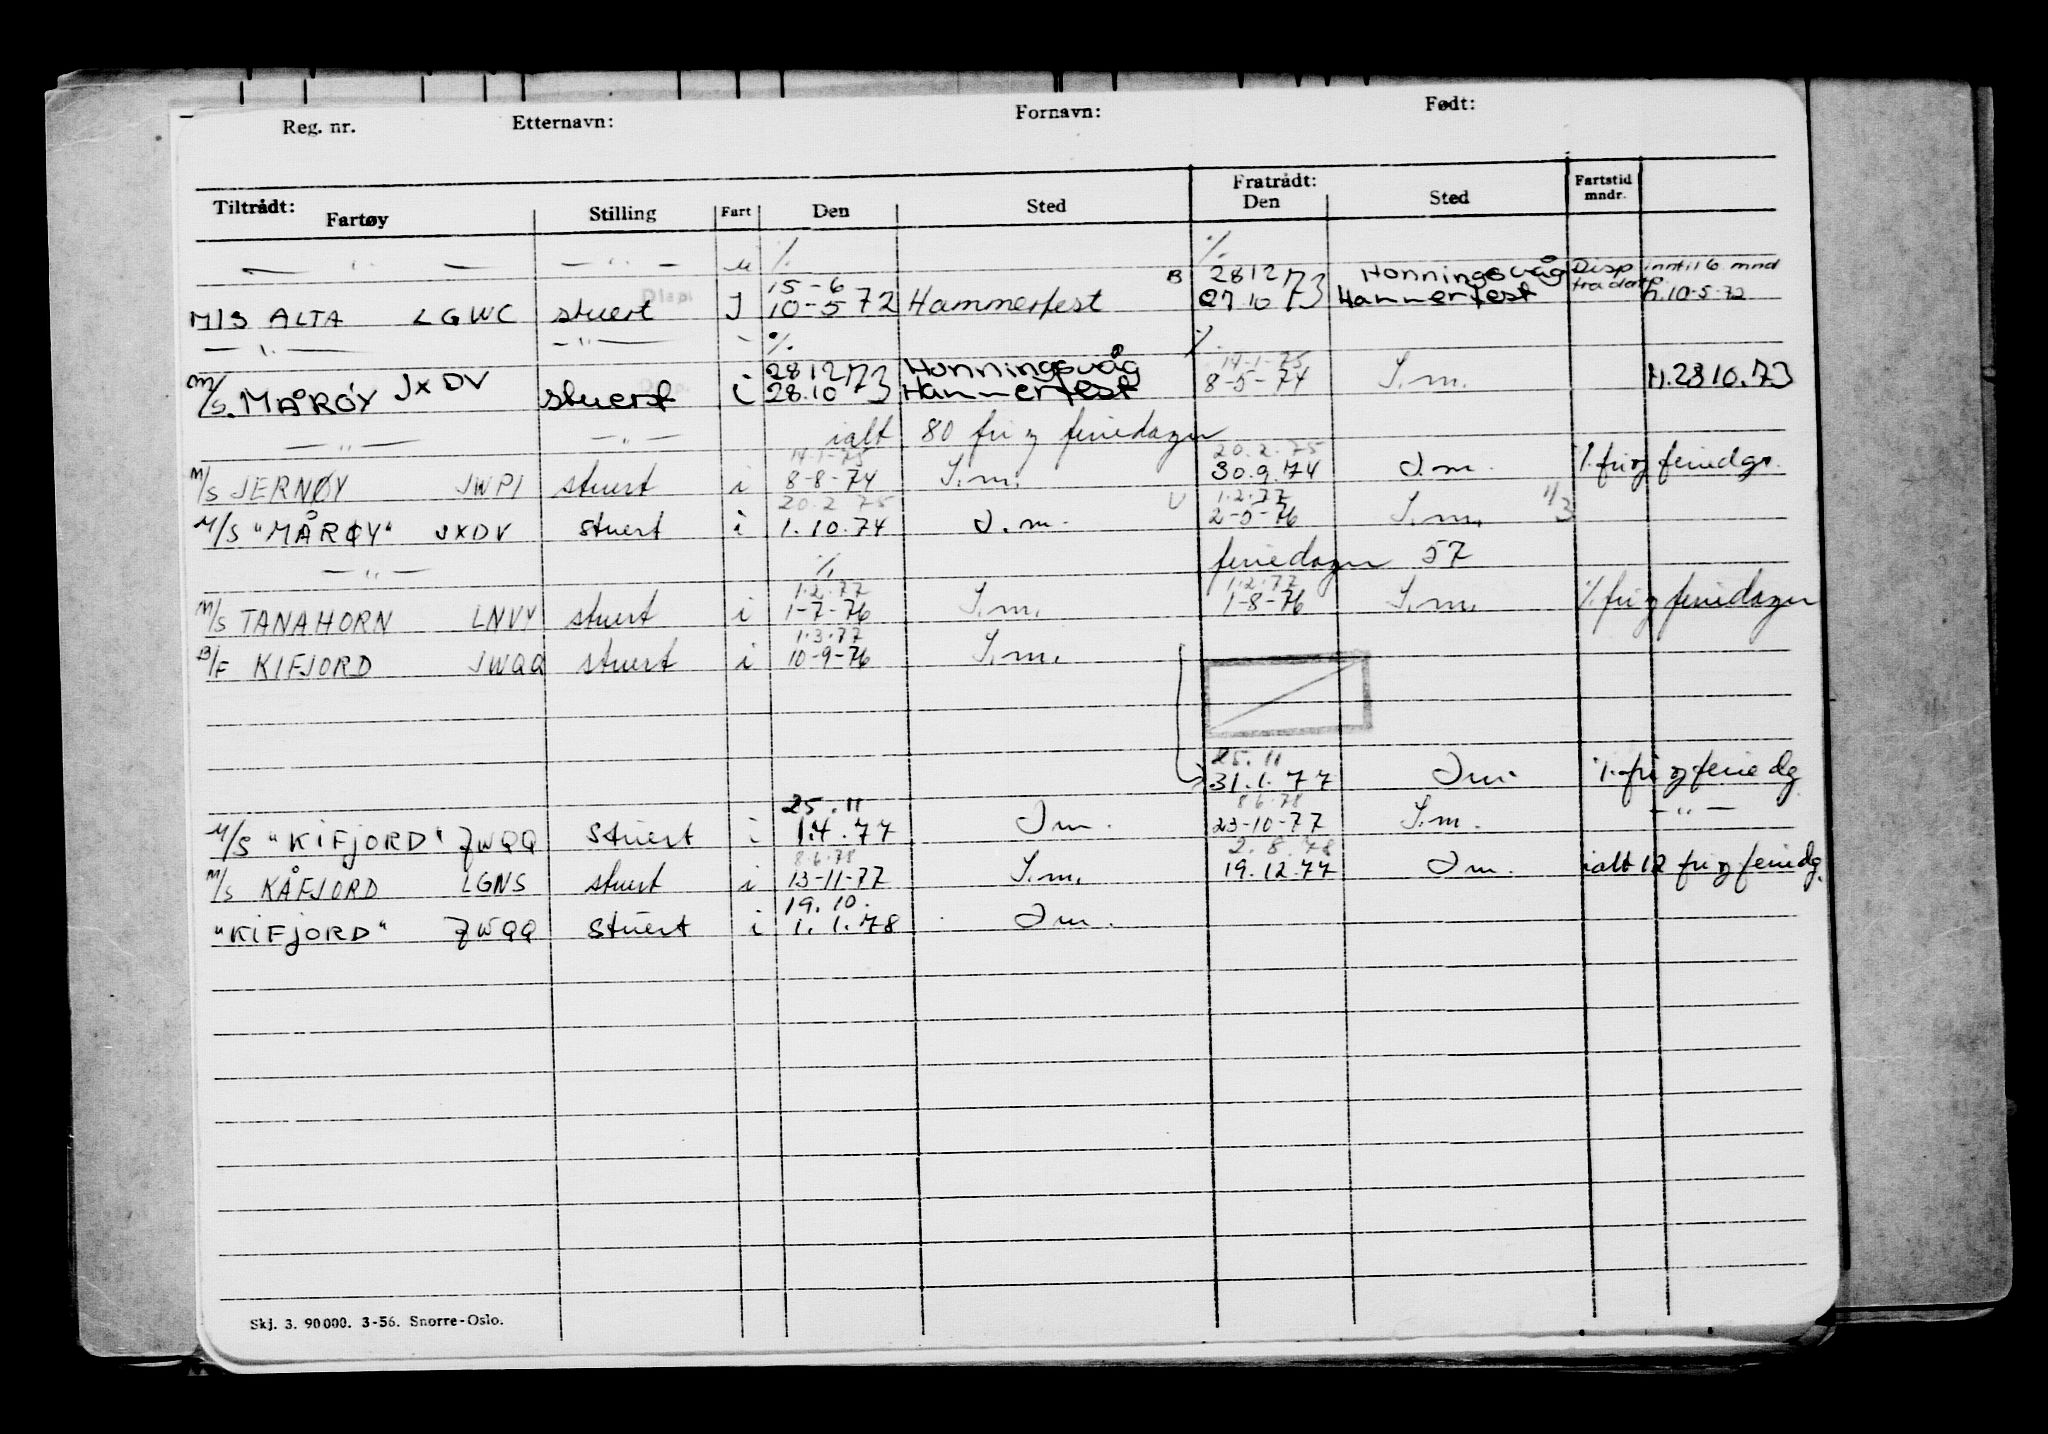 Reg. nr. Etternavn: Fornavn: Født:
Tiltrådt: Fratrådt:
Fartøy Stilling Fart Den Sted Den Sted Fartstid mndr.
— " — — " — u % %
15-6 B 28 12 73 Honningsvåg Disp inntil 6 mnd
M/S ALTA LGWC stuert I 10-5 72 Hammerfest 27.10 73 Hammerfest fra dato 10-5-72
— " — — " — - % %
28 12 73 Honningsvåg 14-1-75
M/S. MÅRØY JXDV stuert i 28.10 73 Hammerfest 8-5-74 I.m. h.28 10.73
— " — — " — ialt 80 fri og feriedager
14-1-75 20.2.75
M/S JERNØY JWPI stuert i 8-8-74 I.m. 30.9.74 I.m. % fri og feriedgr.
20.2 75 U 1.2.77
M/S "MÅRØY" JXDV stuert i 1.10.74 I.m. 2-5-76 I.m. 11/3
— " — % feriedager 57
1.2.77 1.2.77
M/S TANAHORN LNVY stuert i 1-7-76 I.m. 1-8-76 I.m. % fri og feriedager
1.3.77
B/F KIFJORD JWQQ stuert i 10-9-76 I.m.
25.11
31.1.77 I.m. % fri og feriedg
25.11 8.6.78
M/S "KIFJORD" JWQQ Stuert i 1.4.77 I.m. 23-10-77 I.m. — " —
8.6.78 2.8.78
M/S KÅFJORD LGNS stuert i 13-11-77 I.m. 19.12.77 I.m. ialt 12 fri og feriedg.
19.10.
"KIFJORD" JWQQ Stuert i 1.1.78 I.m.
Skj. 3. 90 000. 3-56. Snorre-Oslo.